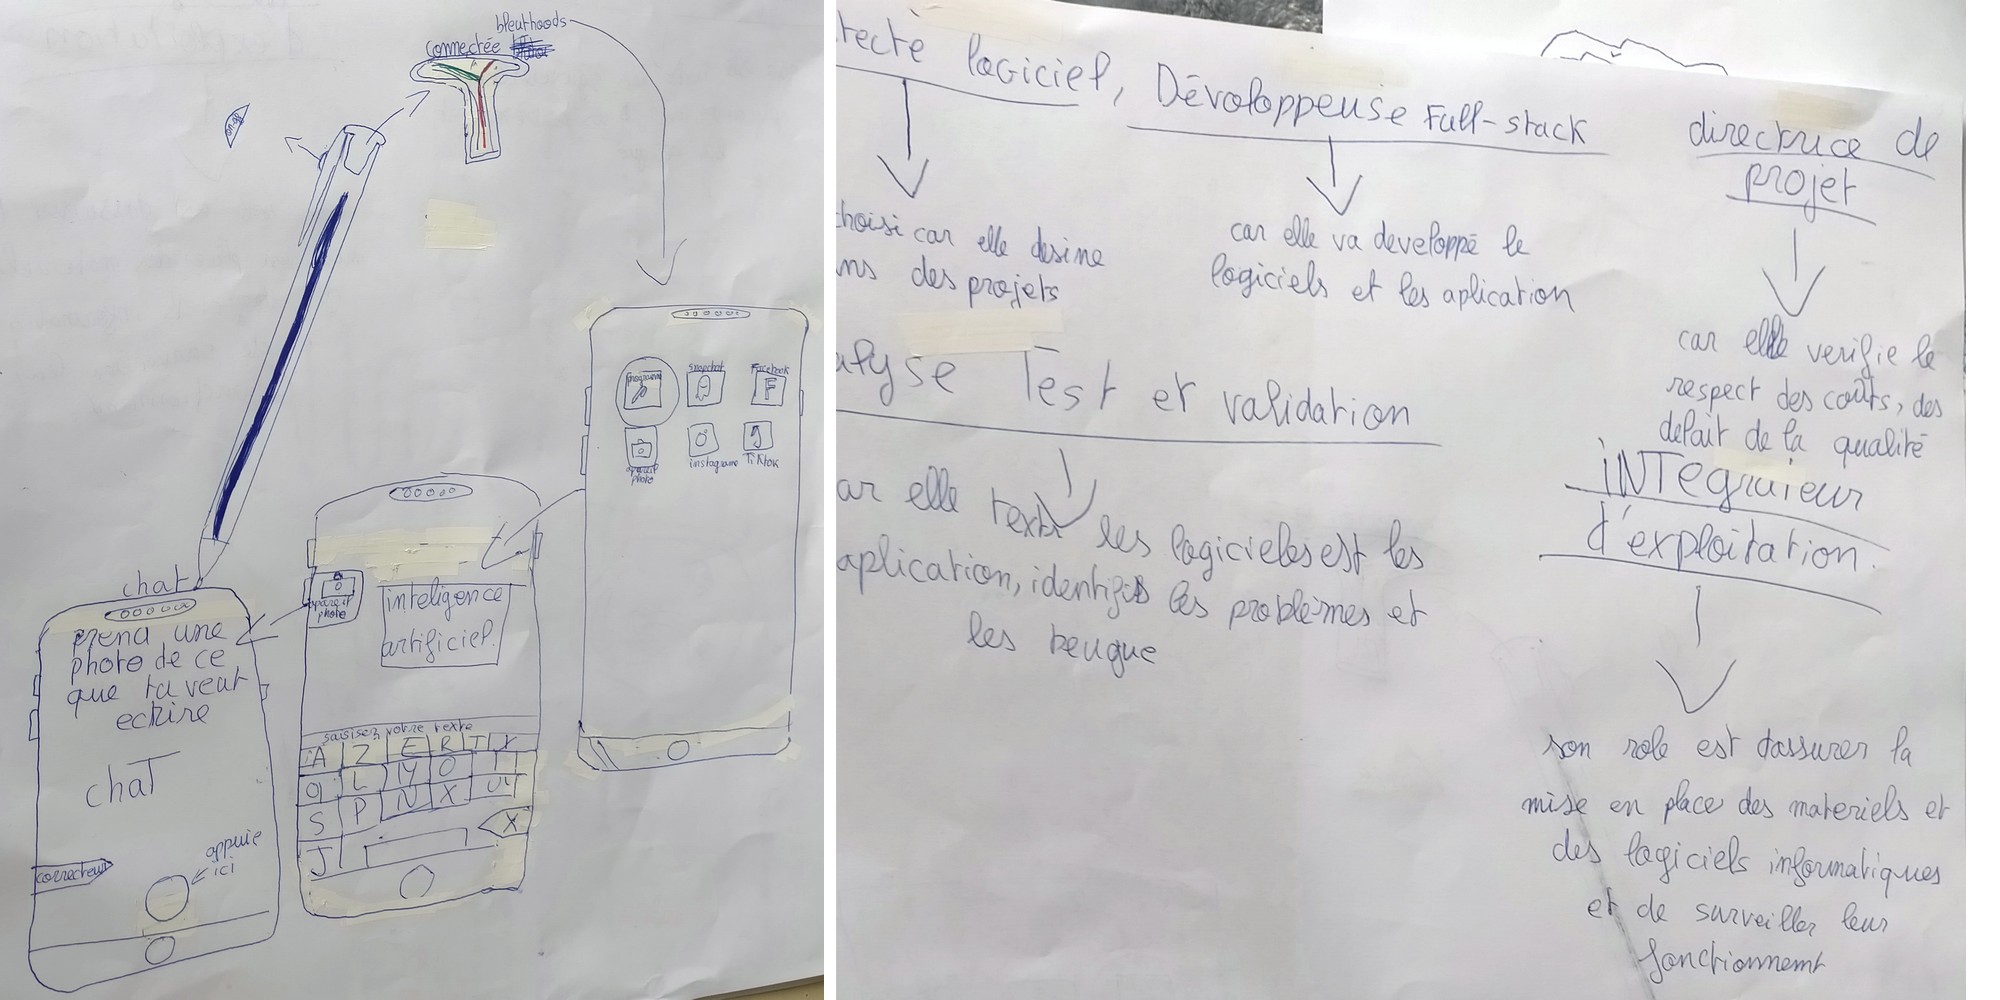 bleuthoods
connectée
on-off
chat
prend une
photo de ce
que tu veut
ecrire
chaT
correcteur
appuie
ici
apareil
photo
inteligence
artificiel.
saisisez votre texte
A Z E R T Y
S P N X
J
X
snapchat
Facebook
F
apareil
photo
instagrame
TikTok
tecte logiciel, Dévoloppeuse Full-stack
directrice de
projet
hoisi car elle desine
ns des projets
car elle va developpé le
logiciels et les aplication
car elle verifie le
respect des coûts, des
delait de la qualité
alyse Test et validation
ar elle les logicieles est les
aplication, identifis les problèmes et
les beugue
iNTegraieur
d'exploitation.
son role est d'assurer la
mise en place des materiels et
des logiciels informatiques
et de surveiller leur
fonctionnement